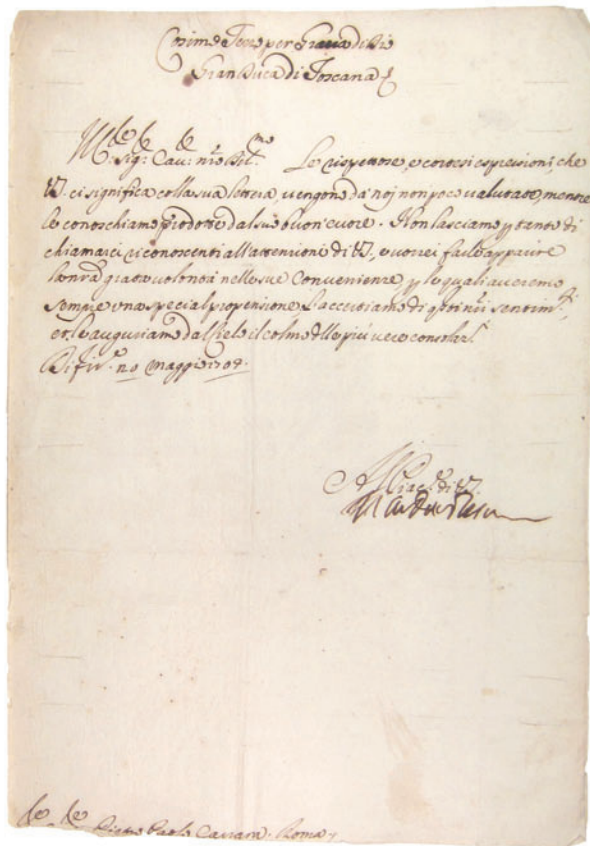 Cosimo Terzo per Grazia di Dio
Gran Duca di Toscana
Sig: Cav: nro Dil.mo Le rispettose, e cortesi espressioni, che
ci significa colla sua lettera, vengono da noi non poco valutate, mentre
le conoschiamo prodotte dal suo buon cuore. Non lasciamo di
chiamarci riconoscenti all'attenzioni di e vorrei farle apparire
la nra grata volontà nelle sue Convenienze, p le quali averemo
sempre una special propensione. L'accertiamo di nri sentim.ti
et le auguriamo dal Cielo il colmo delle più vere consolaz.i
Di Fir.e maggio 1708.
Al di
Il Gran Duca di Tosca
Pietro Paolo Carrara. Roma